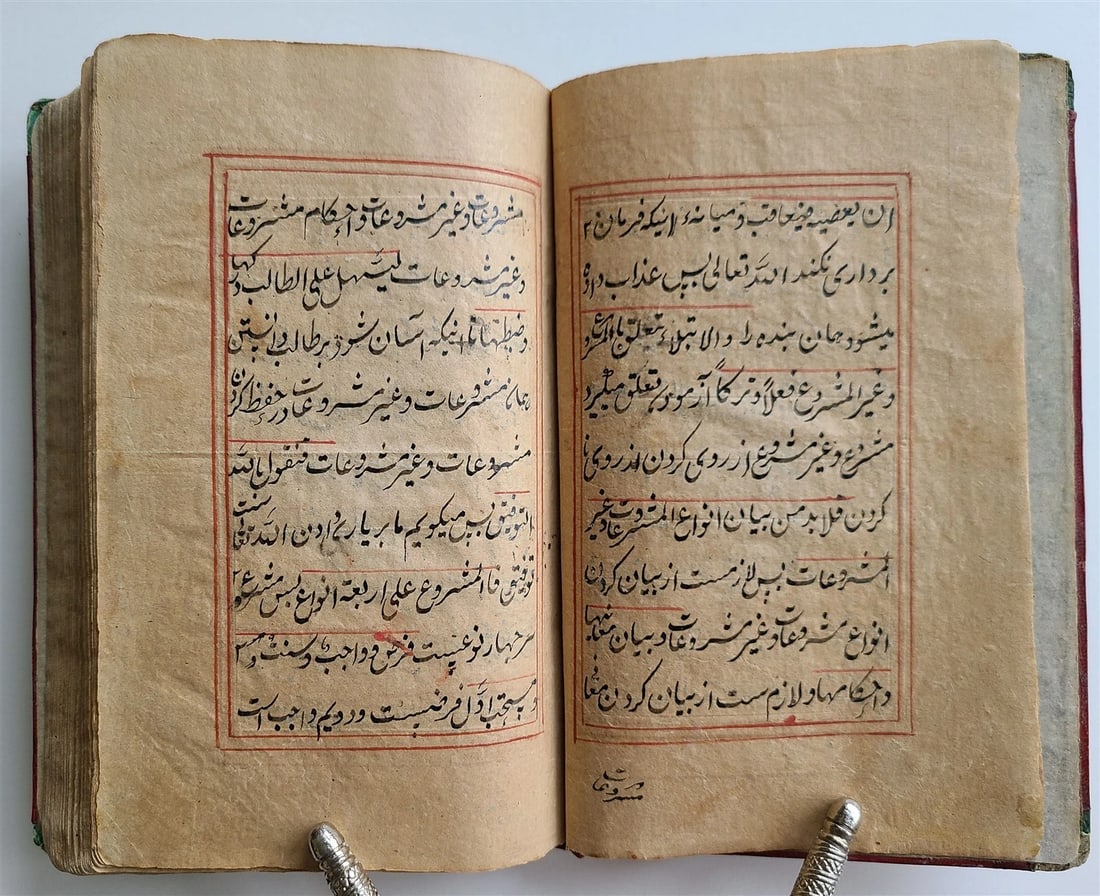 ان یعصیه فیعاقب و میانهٔ اینکه فرمان
برداری نکند الله تعالی پس عذاب داده
میشود جان بنده را والابتلاء یتعلق بالمشروع
و غیر المشروع فعلاً و ترکاً آزمودن تعلق میگیرد
مشروع و غیر مشروع از روی کردن از روی نا
کردن فلابد من بیان انواع المشروعات و غیر
المشروعات پس لازمست از بیان کردن
انواع مشروعات و غیر مشروعات و بیان معانیها
و احکامها و لازم ست از بیان کردن معانی
مشروعات
مشروعات و غیر مشروعات و احکام مشروعات
و غیر مشروعات لیسهل علی الطالب درکها
و ضبطها تا اینکه آسان شود بر طالب دانستن
همان مشروعات و غیر مشروعات در حفظ کردن
مشروعات و غیر مشروعات فنقول بالله
التوفیق پس میگویم ما بر یاری دادن الله تعالی ست
توفیق فاالمشروع علی اربعة انواع پس مشروع
بر چهار نوعیست فرض و واجب و سنت و
و مستحب اول فرضیست و دویم واجب است